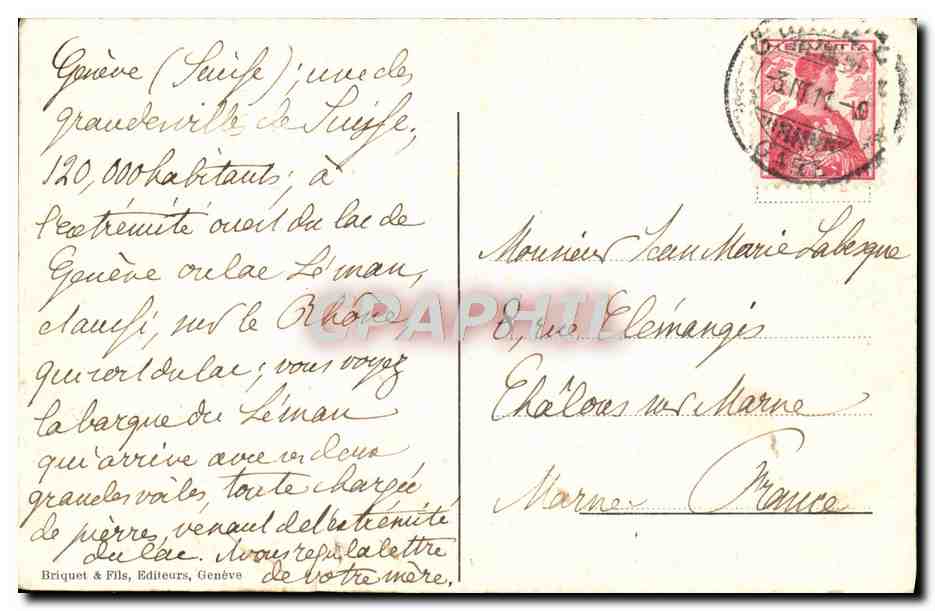 Genève (Suisse); une des
grandes villes de Suisse,
120,000 habitants; à
l'extrémité ouest du lac de
Genève ou lac Léman,
et aussi, sur le Rhône,
qui sort du lac; vous voyez
la barque du Léman
qui arrive avec ses deux
grandes voiles, toute chargée
de pierres, venant de l'extrémité
du lac. Avons reçu la lettre
de votre mère.
Briquet & Fils, Editeurs, Genève
HELVETIA
3.III.11.-10
Monsieur Jean Marie Labesque
8, rue Clémangis
Châlons sur Marne
Marne France
CPAPHIL